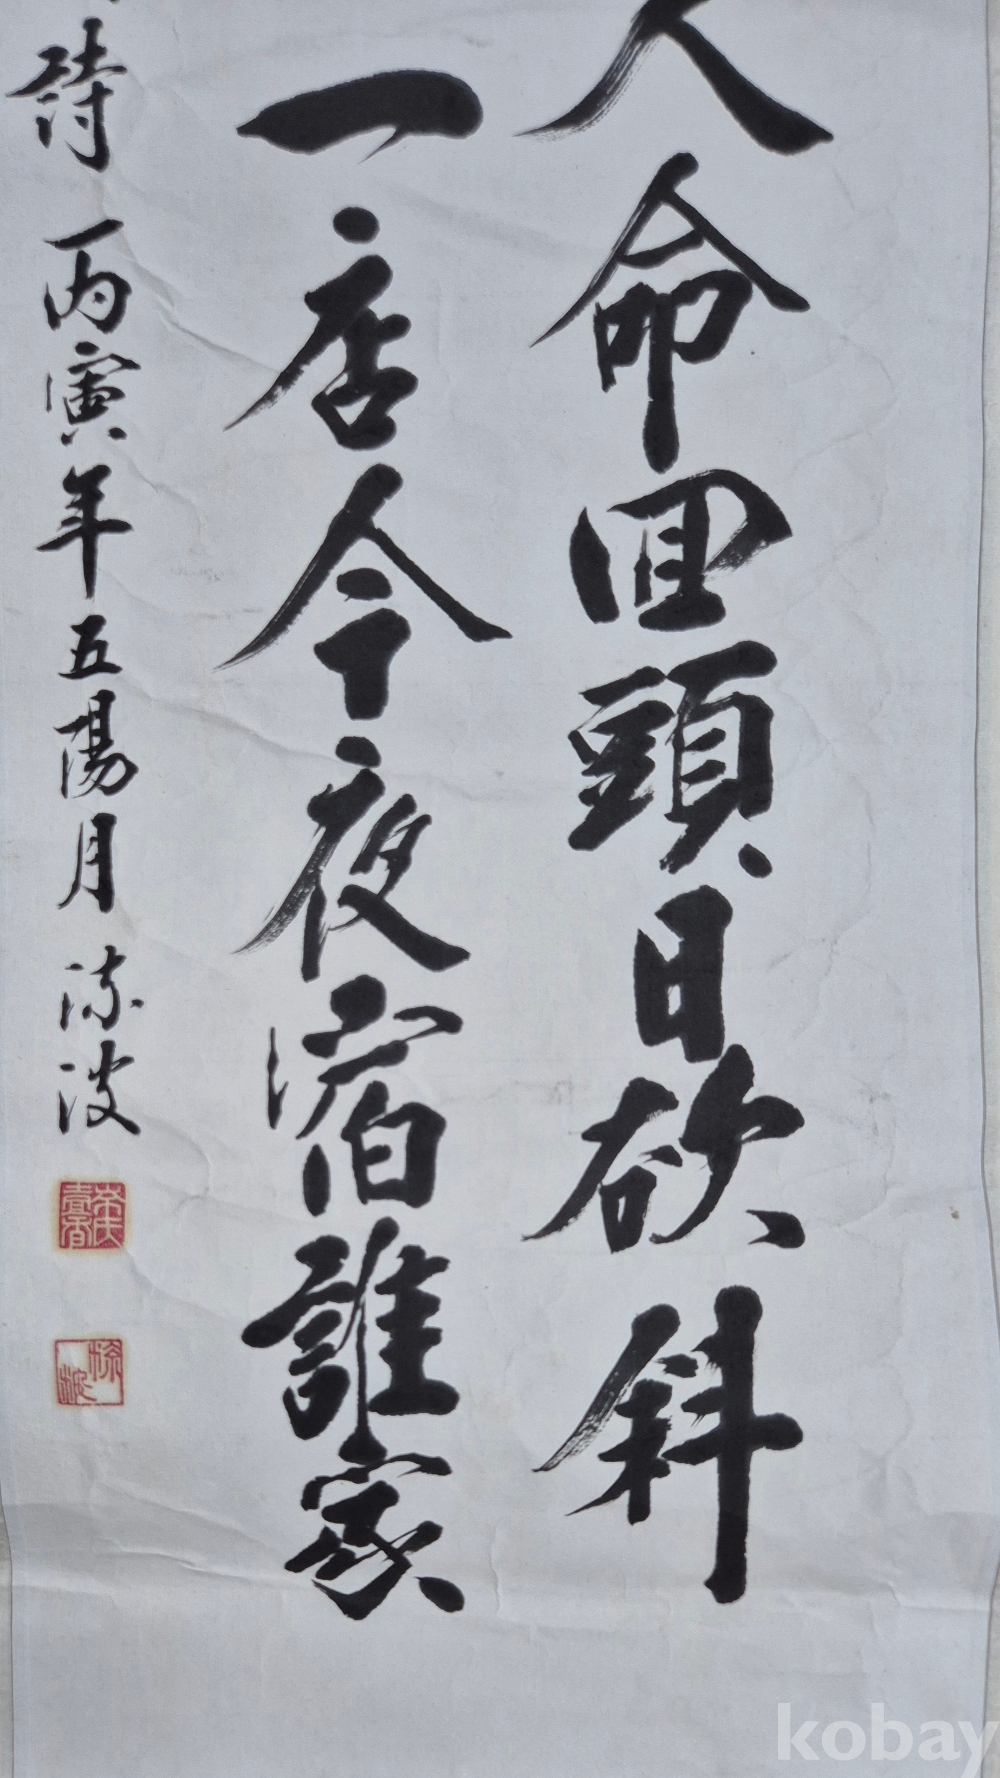 人命回頭日欲斜
一店今夜宿誰家
詩 丙寅年五陽月
kobay